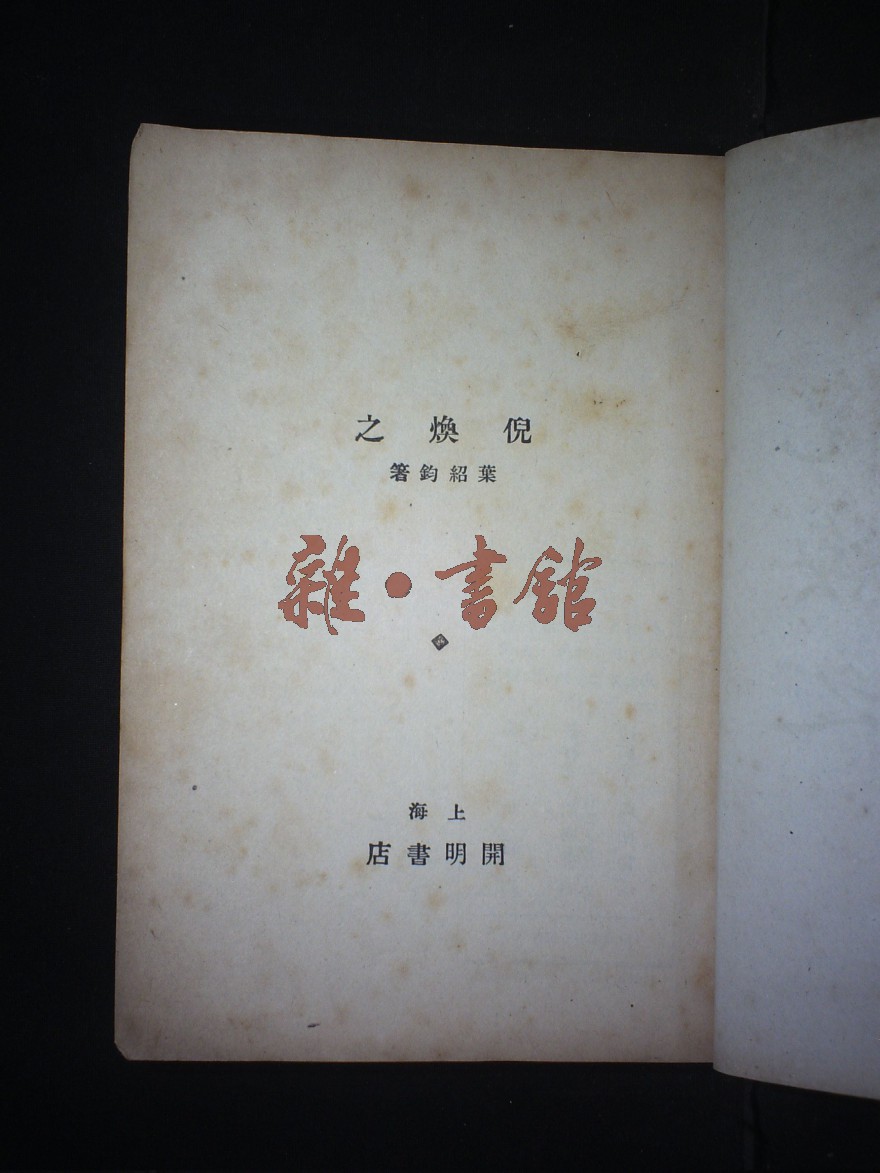 倪煥之
葉紹鈞箸
雜·書館
上海
開明書店